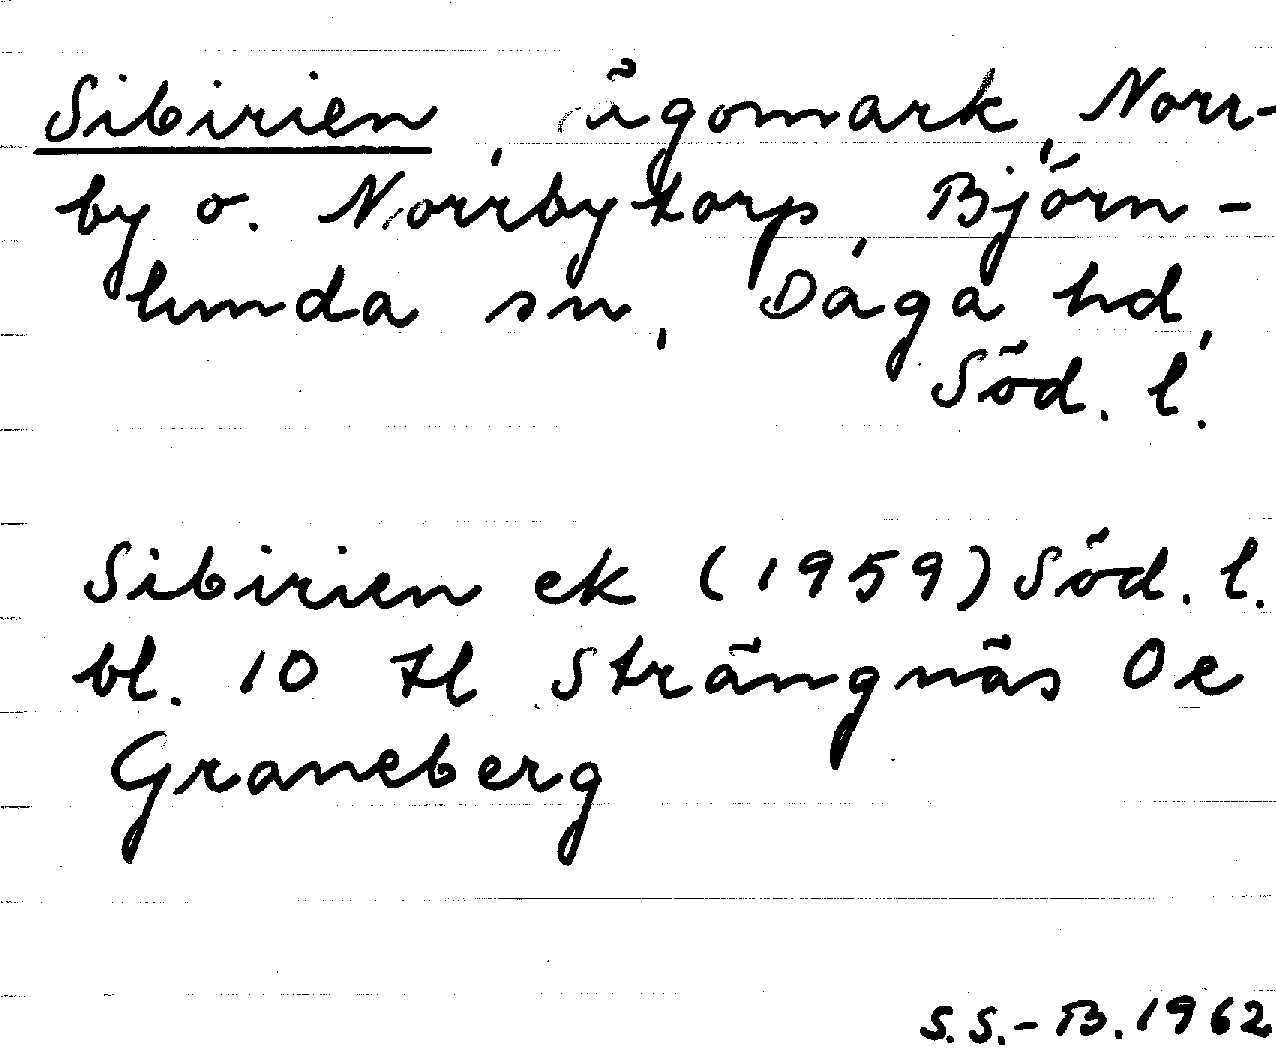 Sibirien, ägomark, Norr-
by o. Norrbytorp, Björn-
lunda sn, Daga hd,
Söd. l.
Sibirien ek (1959) Söd. l.
bl. 10 Hl Strängnäs Oe
Graneberg
S.S.-B. 1962